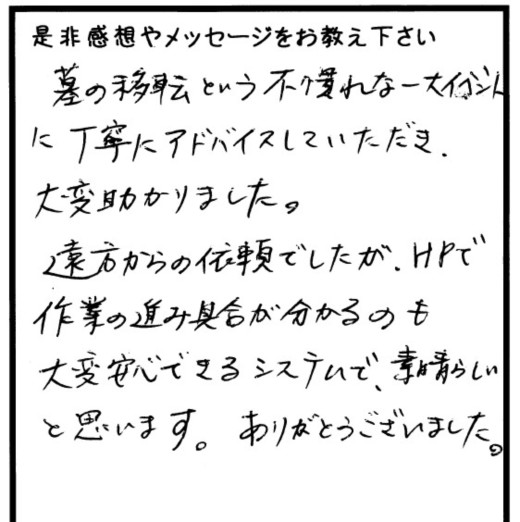 是非感想やメッセージをお教え下さい
墓の移転という不慣れな一大イベント
に丁寧にアドバイスしていただき、
大変助かりました。
遠方からの依頼でしたが、HPで
作業の進み具合が分かるのも
大変安心できるシステムで、素晴らしい
と思います。ありがとうございました。